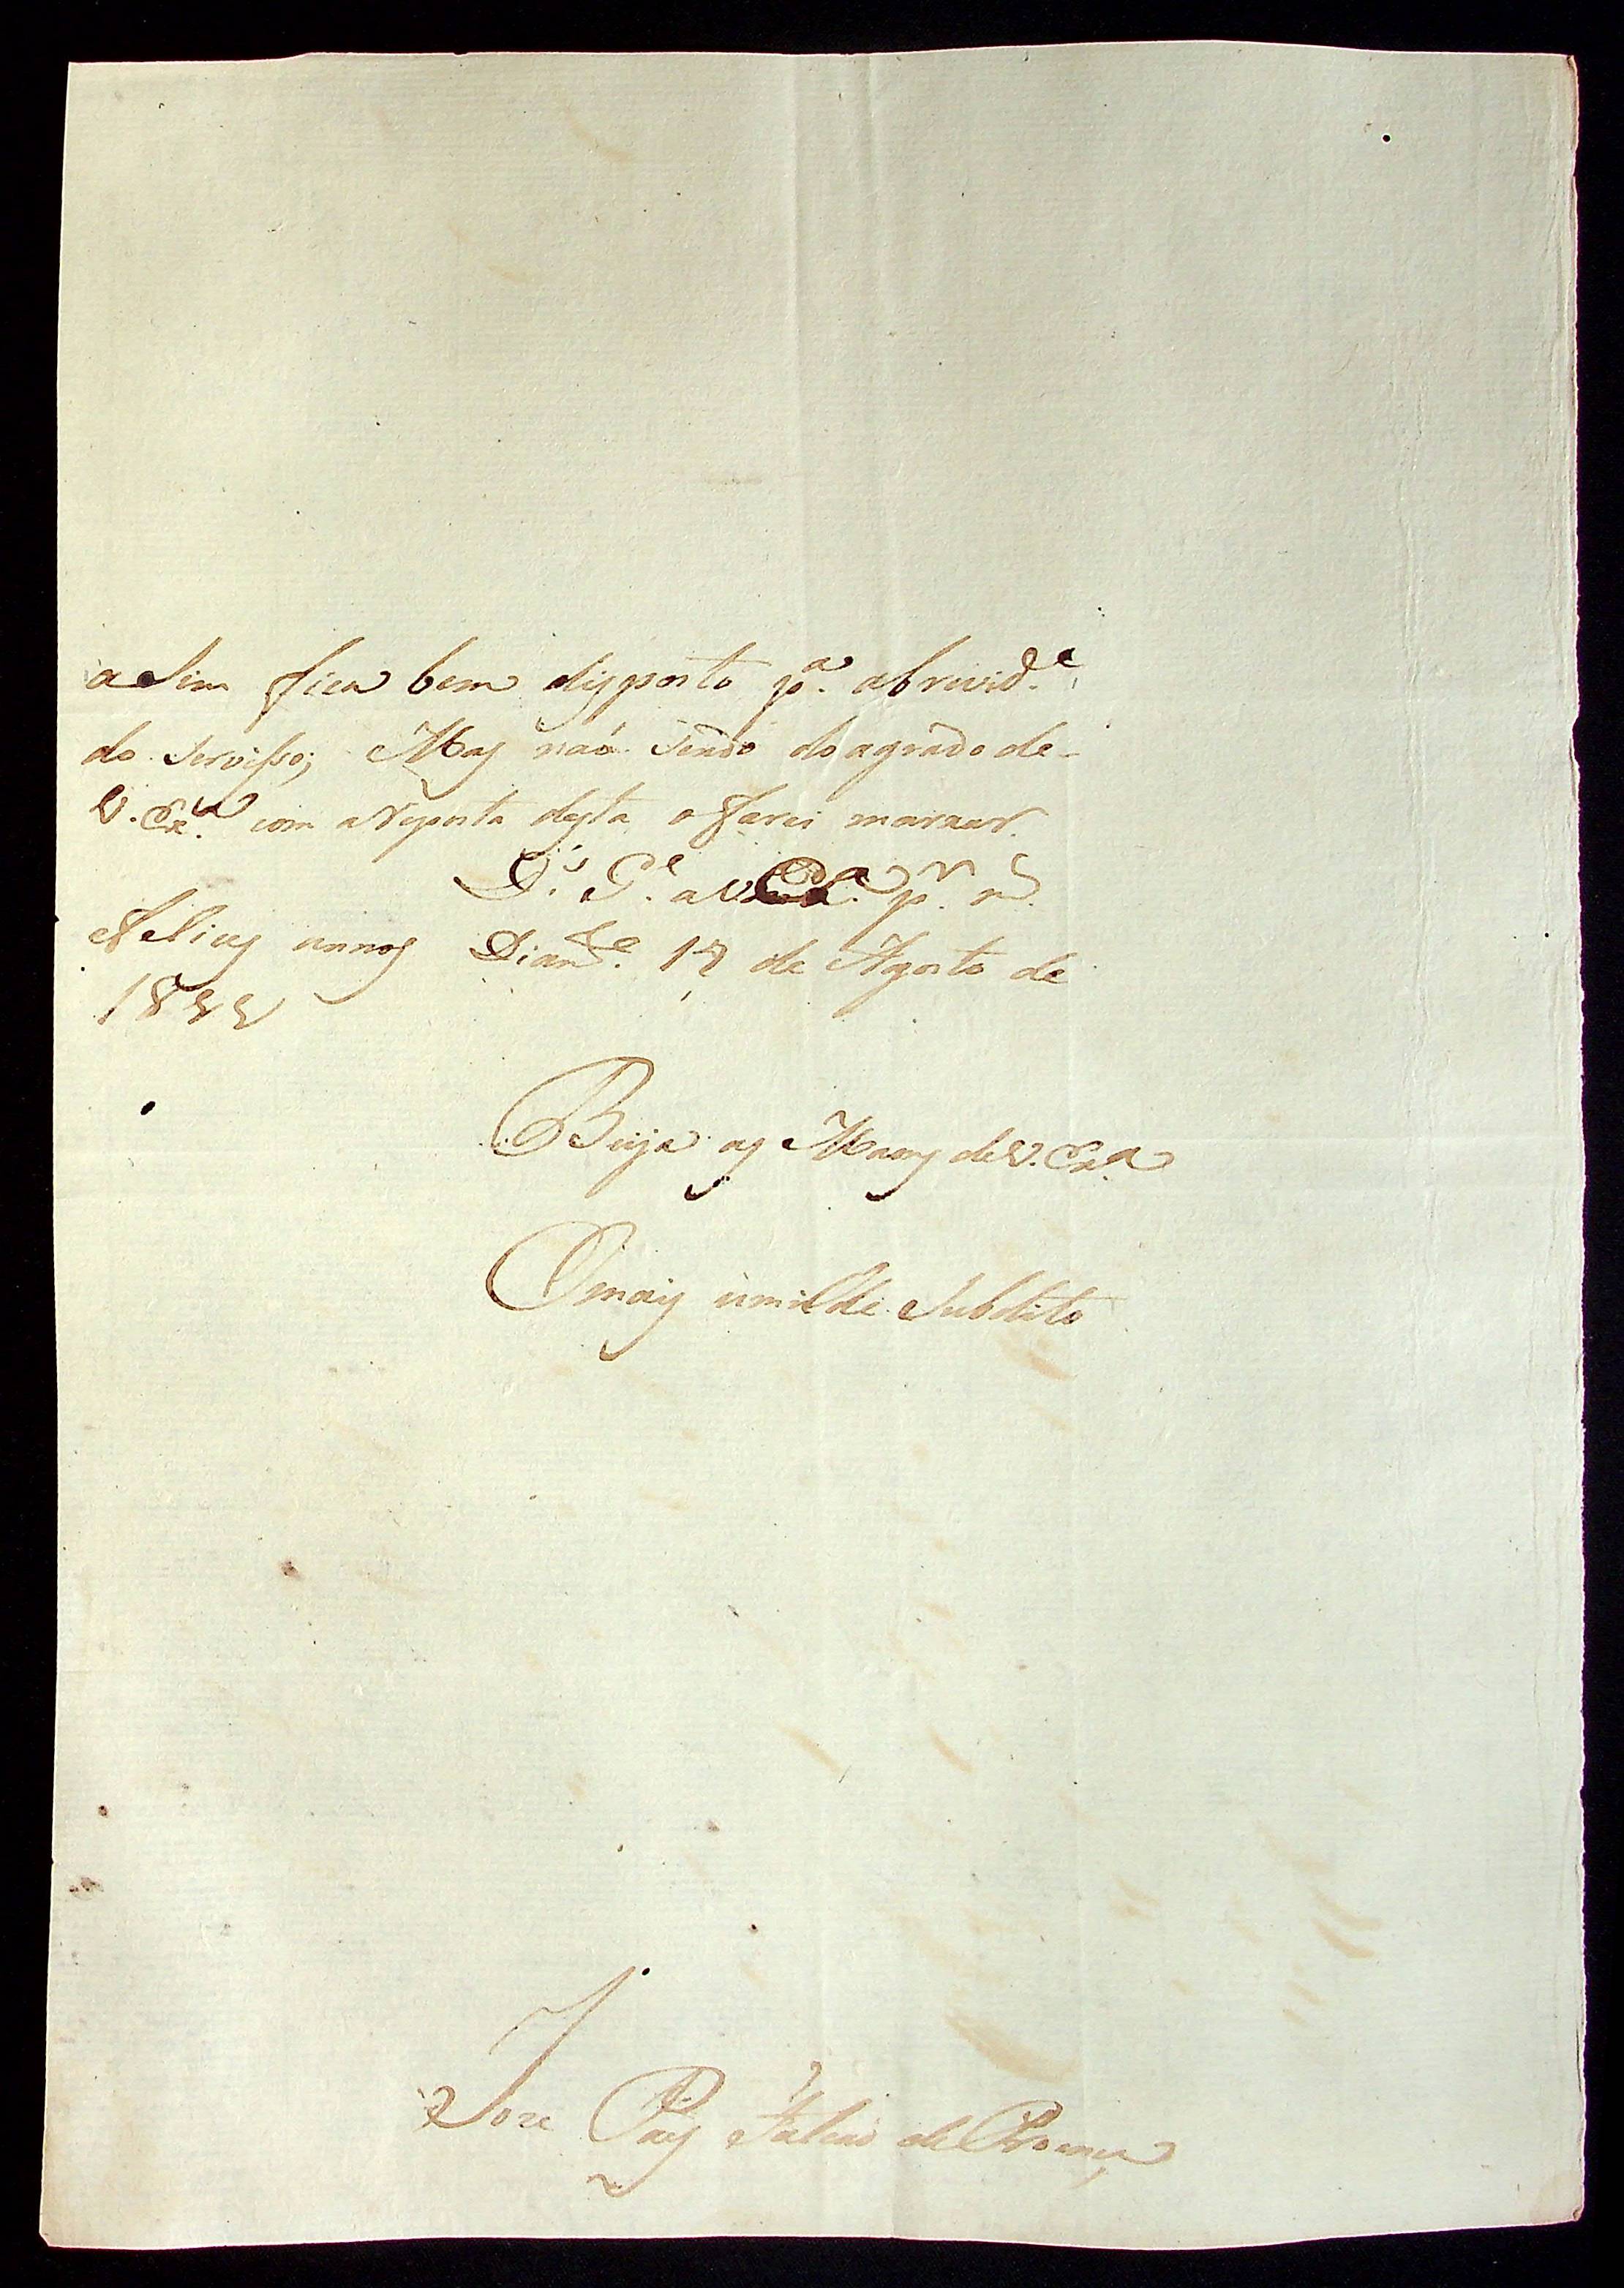 aSim fica bem disposto p.ª abrevid.e
do Servisso; Mas naó Sendo do agrado de-
V. Ex.ª com aResposta desta o farei marxar.
D.s G.e a V. Ex.ª p.r
Felices annos Diam.te 17 de Agosto de
1822
Beija as Maons de V. Ex.ª
O mais umilde Subdito
Joze Pais Falcaó de